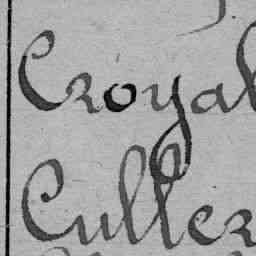 Croyal
Culler